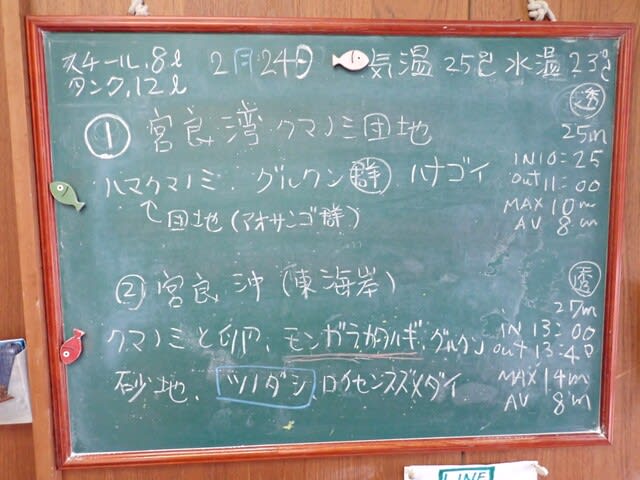 スチール.8ℓ
タンク.12ℓ
2月24日 気温 25℃ 水温 23℃
① 宮良湾 クマノミ団地
透 25m
ハマクマノミ. グルクン群 ハナゴイ
↑団地(アオサンゴ群)
IN 10:25
out 11:00
MAX 10m
AV 8m
② 宮良沖(東海岸)
透 27m
クマノミと卵、モンガラカワハギ、グルクン
砂地、ツノダシ、ロクセンスズメダイ
IN 13:00
out 13:40
MAX 14m
AV 8m
LINE